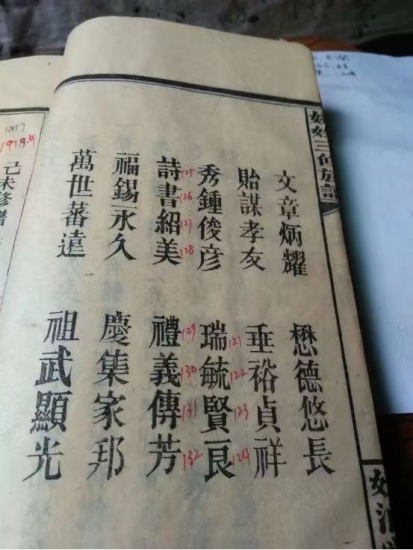 三修族譜
文章炳耀 懋德悠長
貽謀孝友 垂裕貞祥
秀鍾俊彦 瑞毓賢良
121
122
123
124
125
126
127
128
詩書紹美 禮義傳芳
129
130
131
132
福錫永久 慶集家邦
萬世蕃遠 祖武顯光
1919年
己未修譜